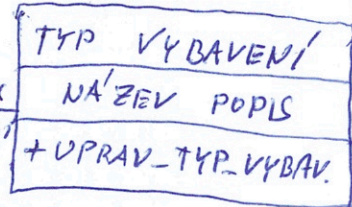 TYP VYBAVENÍ
NÁZEV POPIS
+UPRAV_TYP_VYBAV.